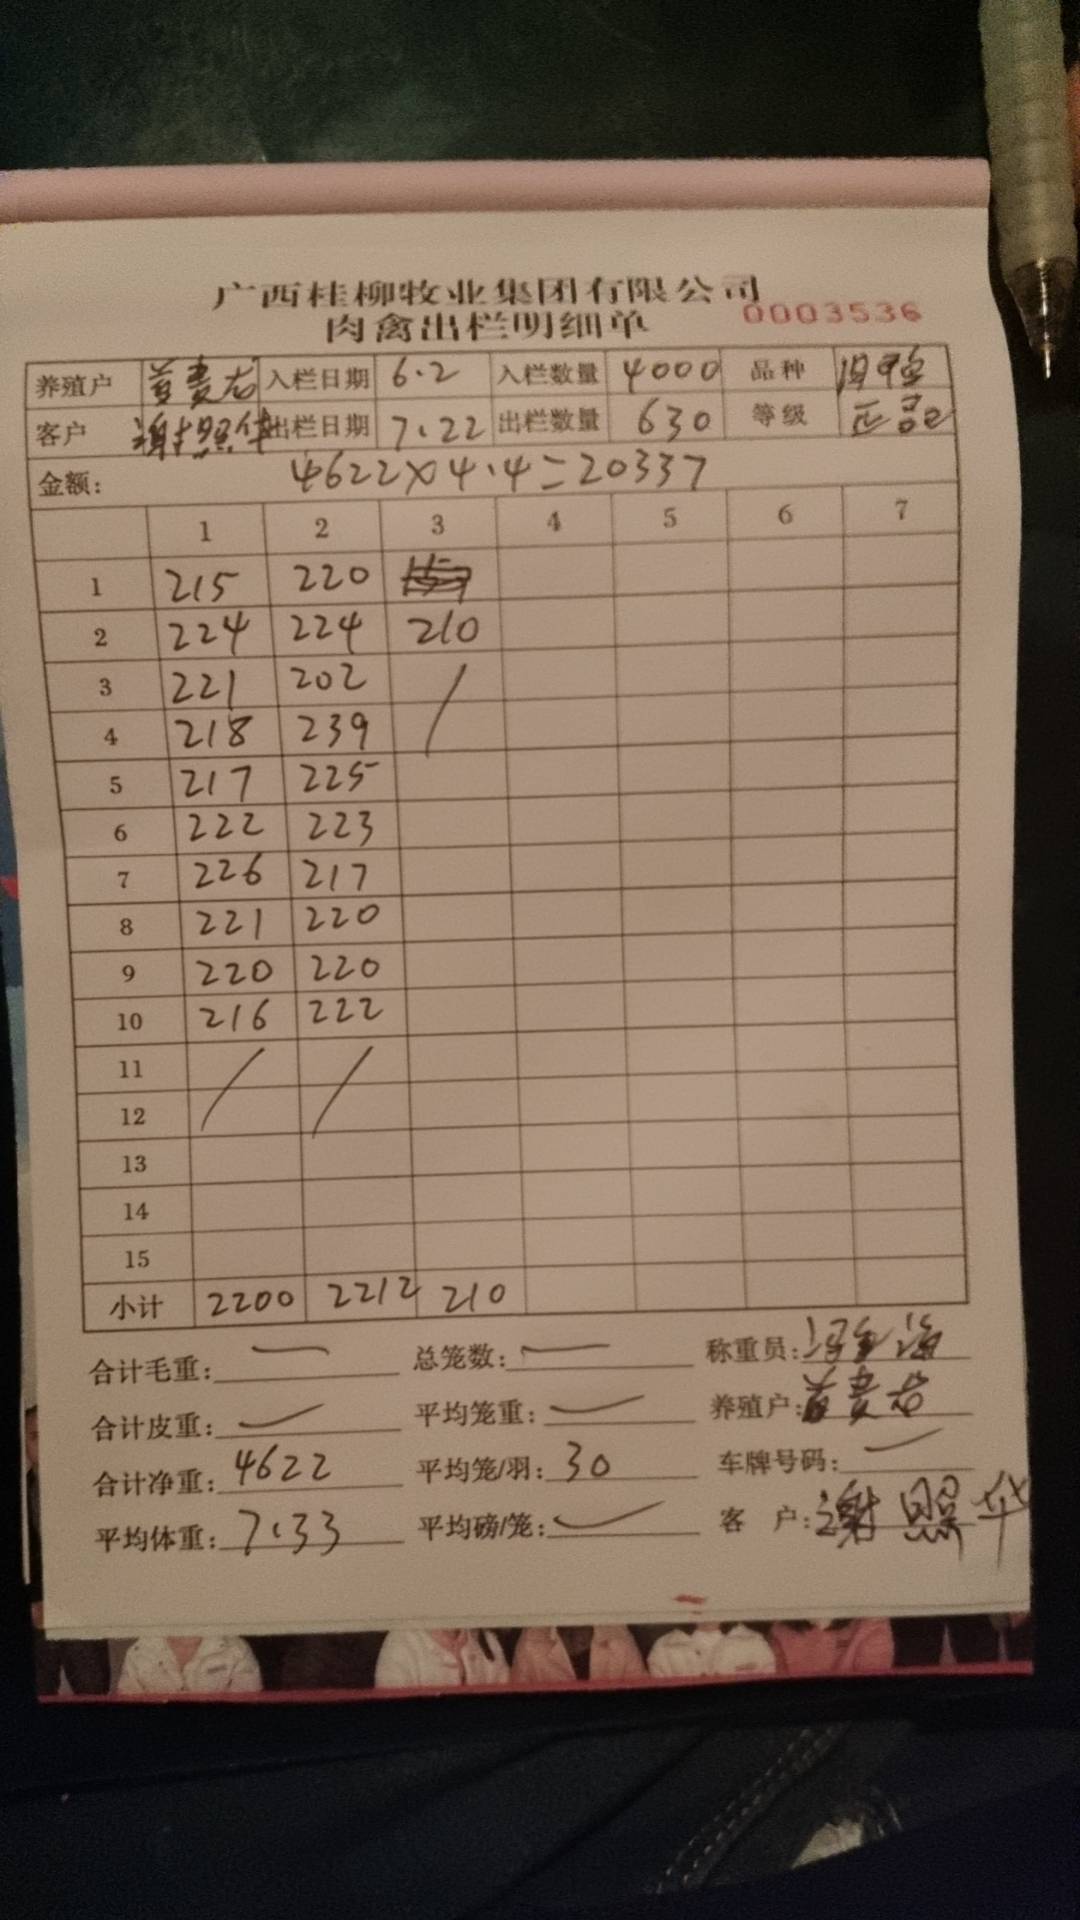 广西桂柳牧业集团有限公司
肉禽出栏明细单 0003536
养殖户 入栏日期 6.2 入栏数量 4000 品种
客户 谢照华 出栏日期 7.22 出栏数量 630 等级 正品
金额: 4622×4.4=20337
1 2 3 4 5 6 7
1 215 220
2 224 224 210
3 221 202 /
4 218 239
5 217 225
6 222 223
7 226 217
8 221 220
9 220 220
10 216 222
11 / /
12
13
14
15
小计 2200 2212 210
合计毛重: 总笼数: 称重员:
合计皮重: 平均笼重: 养殖户:
合计净重: 4622 平均笼/羽: 30 车牌号码:
平均体重: 7.33 平均磅/笼: 客 户: 谢照华